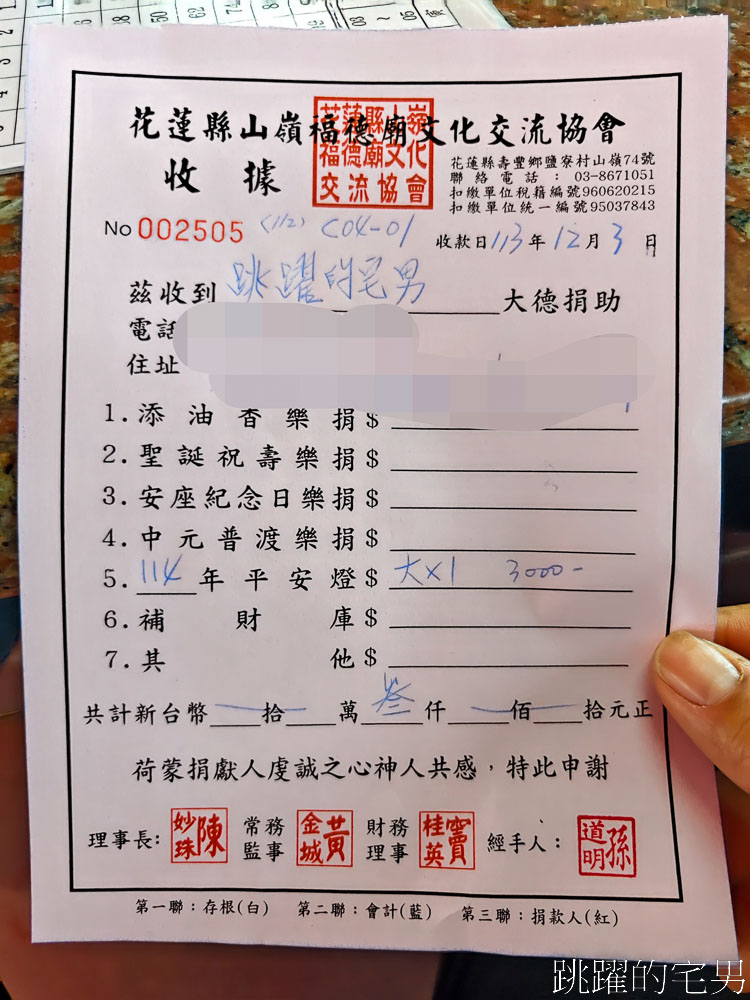 花蓮縣山嶺福德廟文化交流協會
收據
花蓮縣山嶺福德廟文化交流協會
花蓮縣壽豐鄉鹽寮村山嶺74號
聯絡電話：03-8671051
扣繳單位稅籍編號960620215
扣繳單位統一編號95037843
No 002505 (112) C04-01 收款日113年12月3日
茲收到 跳躍的宅男 大德捐助
電話
住址
1.添油香樂捐$
2.聖誕祝壽樂捐$
3.安座紀念日樂捐$
4.中元普渡樂捐$
5.114年平安燈$ 大x1 3000-
6.補財庫$
7.其他$
共計新台幣 拾 萬 叁 仟 佰 拾元正
荷蒙捐獻人虔誠之心神人共感，特此申謝
理事長: 陳妙珠 常務監事 黃金城 財務理事 竇桂英 經手人: 孫道明
第一聯:存根(白) 第二聯:會計(藍) 第三聯:捐款人(紅)
跳躍的宅男